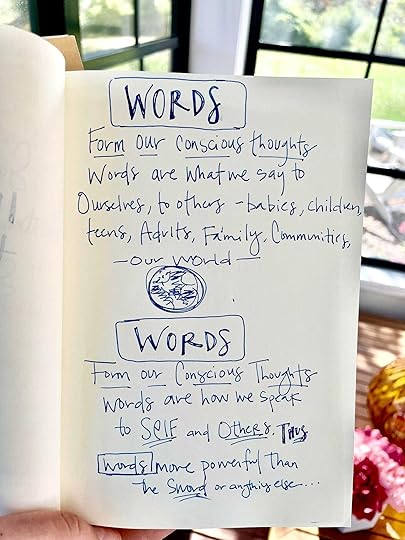 WORDS
Form our conscious thoughts
Words are what we say to
Ourselves, to others - babies, children,
teens, Adults, Family, Communities,
- our world -
WORDS
Form our Conscious Thoughts
Words are how we speak
to SELF and Others. Thus
Words more powerful than
the Sword or anything else...